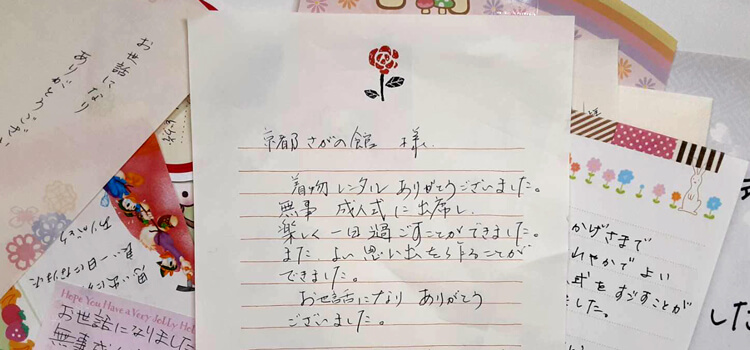 京都さがの館 様
着物レンタル ありがとうございました。
無事 成人式に出席し、
楽しく一日過ごすことができました。
また よい思い出を作ることが
できました。
お世話になり ありがとう
ございました。
お世話になり
ありがとうござい
思い出に
良い一日になりました
Hope You Have a Very Jolly Ho
お世話になりました
無事
かげさまで
やかでよい
式をすごすことが
した。
した